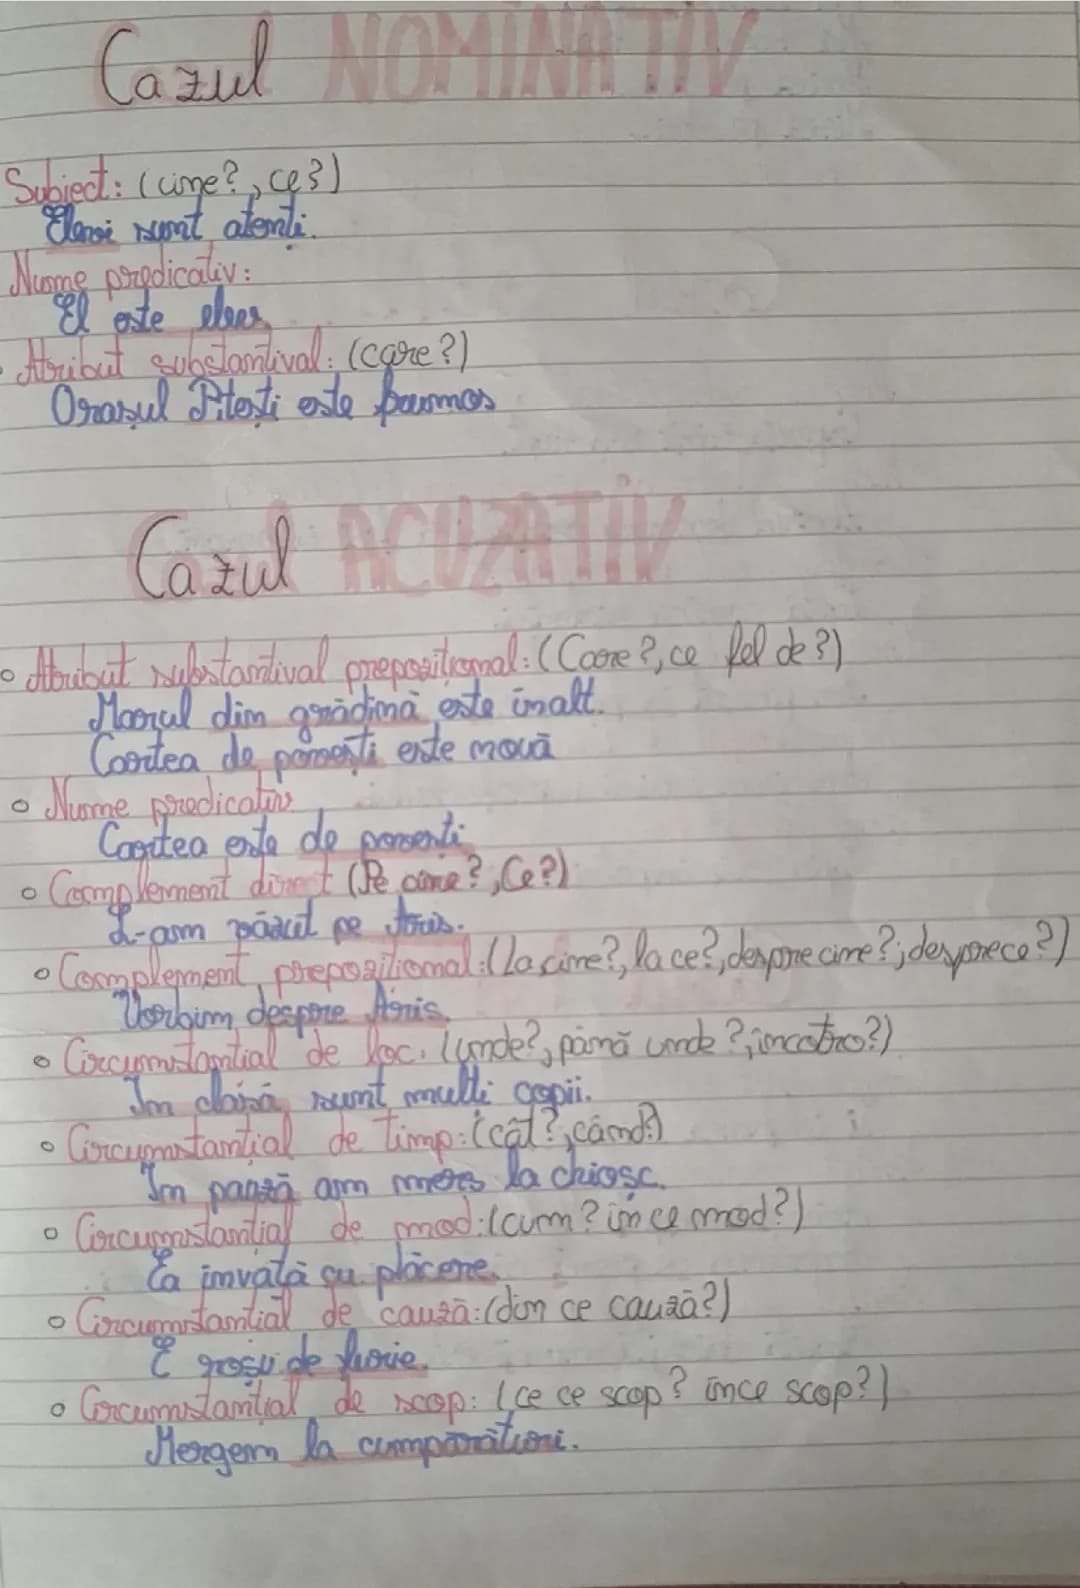 Cazul NOMINATIV
Subiect: (cine?, ce?)
Elevii sunt atenți.
Nume predicativ:
El este elev
Atribut substantival: (care?)
Orașul Pitești este frumos
Cazul ACUZATIV
Atribut substantival prepozițional: (Care?, ce fel de?)
Marul din grădină este înalt.
Cartea de povești este nouă
Nume predicativ
Cartea este de povești
Complement direct (Pe cine?, Ce?)
L-am văzut pe Aris.
Complement prepozițional: (La cine?, la ce?, despre cine?; despre ce?)
Vorbim despre Aris.
Circumstanțial de loc. (unde?, până unde?, încotro?)
În clasă sunt mulți copii.
Circumstanțial de timp: (cât?, când?)
În pauză am mers la chioșc.
Circumstanțial de mod: (cum? în ce mod?)
Ea învață cu plăcere.
Circumstanțial de cauză: (din ce cauză?)
E roșu de furie.
Circumstanțial de scop: (ce ce scop? înce scop?)
Mergem la cumpărături.